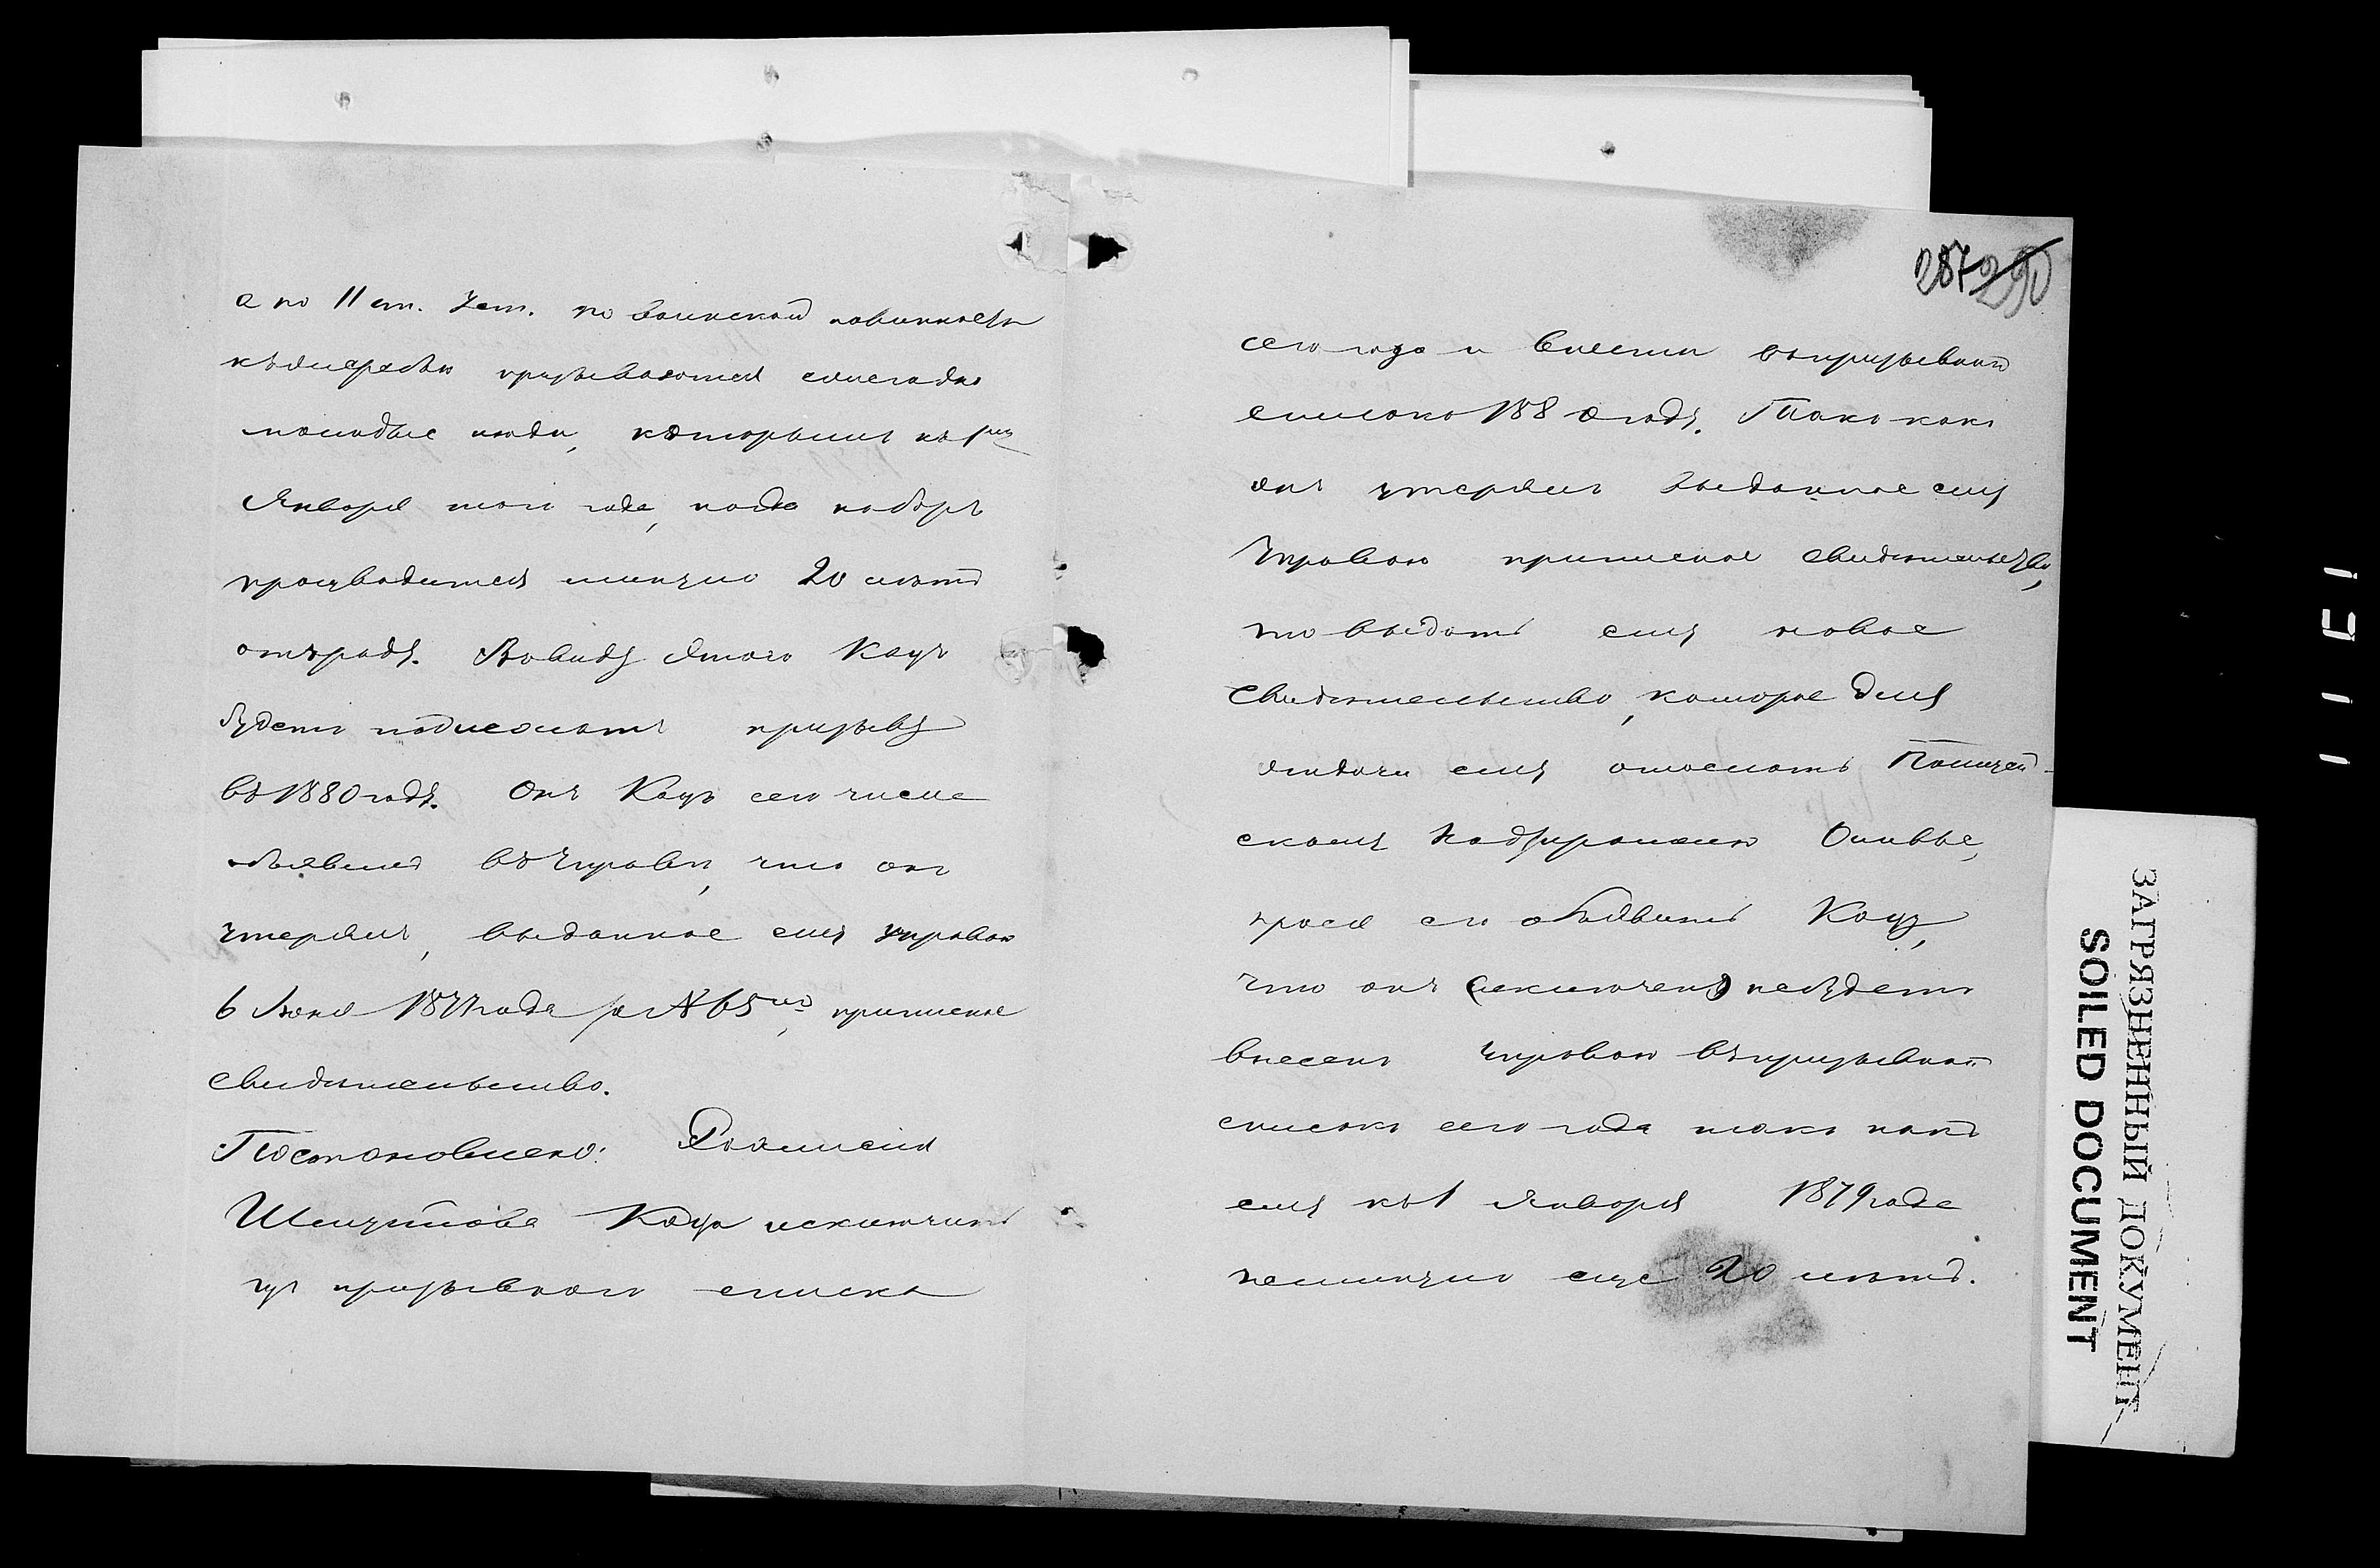 а по 11 ст. Уст. по воинской повинности
къ жеребью призываются ежегодно
молодые люди, которымъ къ 1му
Января того года, когда наборъ
производится минуло 20 лѣтъ
отъ роду. Въ виду этого Кацъ
будетъ подлежать призыву
въ 1880 году. Онъ Кацъ сего числа
объявилъ въ Управѣ, что онъ
утерялъ, выданное ему управою
6 Іюня 1877 года за № 65мъ, приписное
свидѣтельство.
Постановлено:
Каца исключить
изъ призывного списка
287 290
сего года и внести въ призывной
списокъ 1880 году. Такъ какъ
онъ утерялъ выданное ему
Управою приписное свидѣтельство,
то выдать ему новое
свидѣтельство, которое для
отдачи ему отослать Полицей-
скому Надзирателю
прося его объявить Кацу,
что онъ (исключенъ) не будетъ
внесенъ управою въ призывной
списокъ сего года такъ какъ
ему къ 1 Января 1879 года
не минуло еще 20 лѣтъ.
ЗАГРЯЗНЕННЫЙ ДОКУМЕНТ
SOILED DOCUMENT